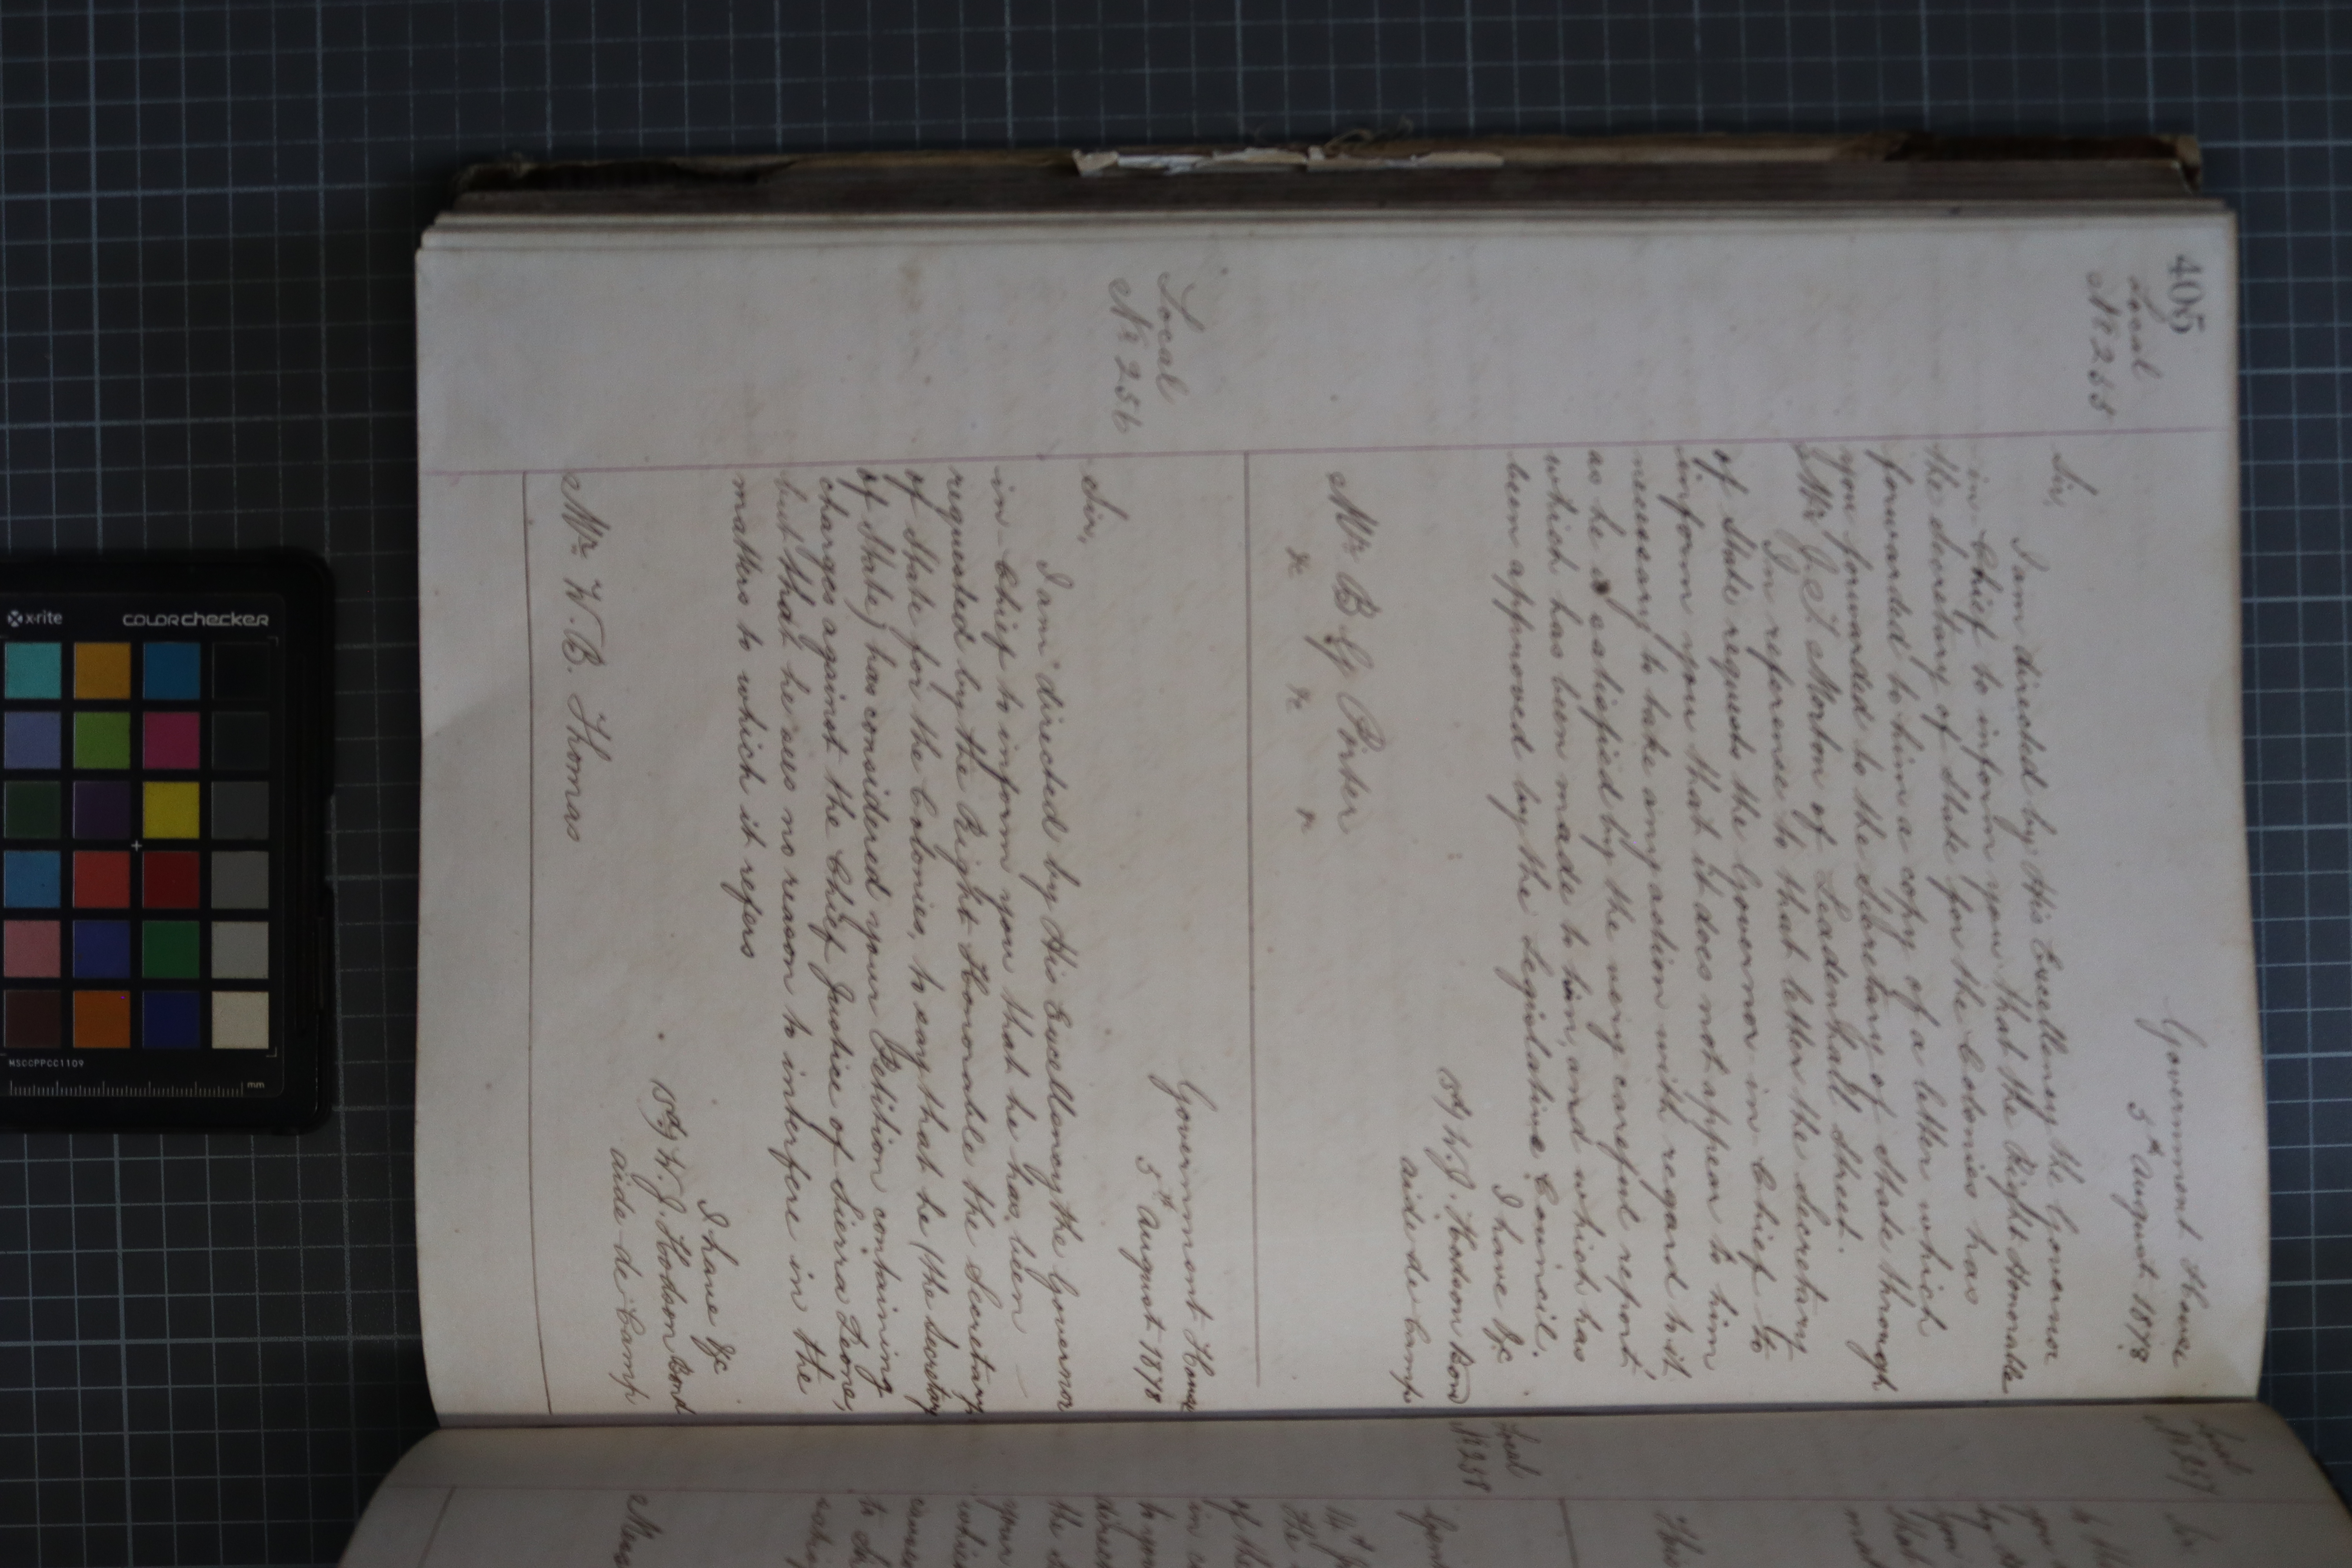 405
Local
No 255
Government House
5th August 1878
Sir,
I am directed by His Excellency the Governor
in-Chief to inform you that the Right Honorable
the Secretary of State for the Colonies has
forwarded to him a copy of a letter which
you forwarded to the Secretary of State through
Mr J. S. Morton of Leadenhall Street.
In reference to that letter the Secretary
of State requests the Governor in Chief to
inform you that it does not appear to him
necessary to take any action with regard to it
as he is satisfied by the very careful report,
which has been made to him, and which has
been approved by the Legislative Council.
I have &c
W. J. Hodson Bond
aide de Camp
Mr B G Porter
&c &c &c
Local
No 256
Government House
5th August 1878
Sir,
I am directed by His Excellency the Governor
in-Chief to inform you that he has been
requested by the Right Honorable the Secretary
of State for the Colonies, to say that he (the Secretary
of State) has considered your Petition containing
charges against the Chief Justice of Sierra Leone,
but that he sees no reason to interfere in the
matters to which it refers
I have &c
W. J. Hodson Bond
aide-de-Camp
Mr W. B. Thomas
Local
No 257
Sir
Local
No 258
x-rite
COLORchecker
MSCCPPCC1109
mm